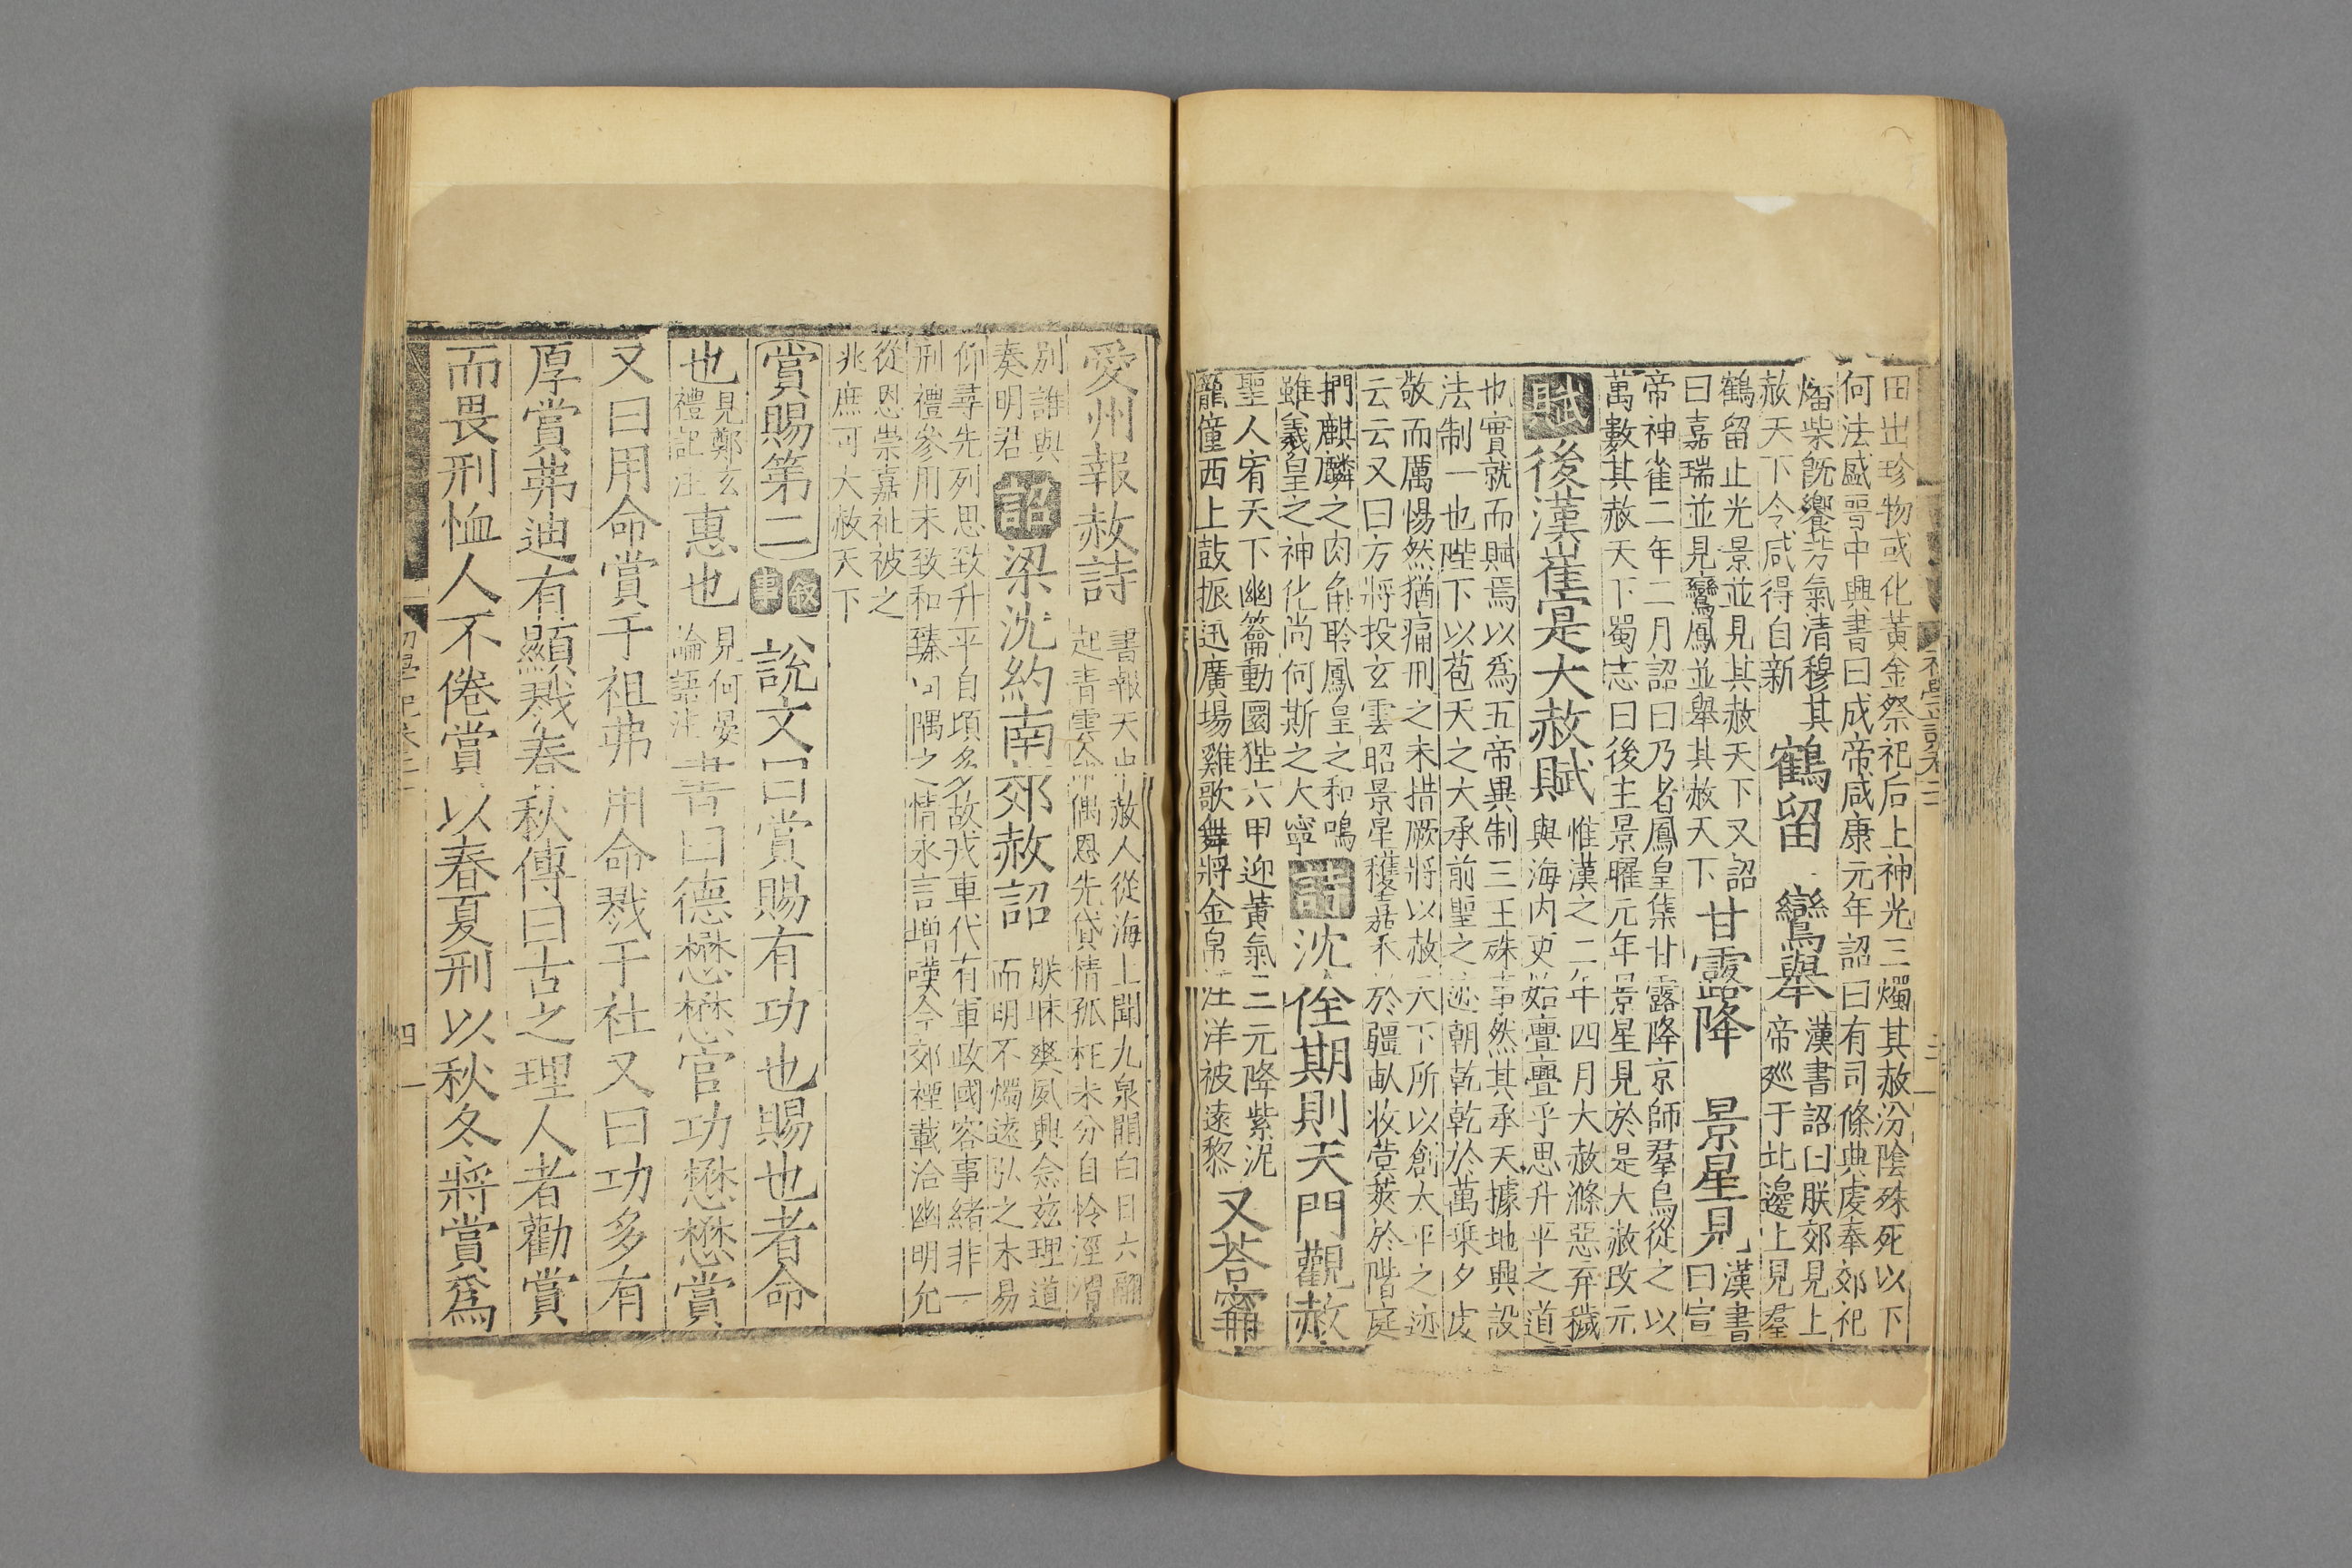 田出珍物或化黃金祭祀后上神光三燭其赦汾陰殊死以下
何法盛晉中興書曰成帝咸康元年詔曰有司條典虔奉郊祀
燔柴旣饗芬氣清穆其
赦天下令咸得自新
鶴留
鸞舉
漢書詔曰朕郊見上
帝廵于北邊上見羣
鶴留止光景並見其赦天下又詔
曰嘉瑞並見鸞鳳並舉其赦天下
甘露降
景星見
漢書
曰宣
帝神雀二年二月詔曰乃者鳳皇集甘露降京師羣烏從之以
萬數其赦天下蜀志曰後主景曜元年景星見於是大赦改元
賦
後漢崔寔大赦賦
惟漢之二年四月大赦滌惡弃穢
與海内更始亹亹乎思升平之道
也實就而賦焉以爲五帝異制三王殊事然其承天據地興設
法制一也陛下以苞天之大承前聖之迹朝乾乾於萬乘夕虔
敬而厲惕然猶痛刑之未措厥將以赦天下所以創太平之迹
云云又曰方將投玄雲昭景星穫嘉禾於疆畝收蓂莢於階庭
捫麒麟之肉角聆鳳皇之和鳴
雖羲皇之神化尚何斯之大寧
詩
沈佺期則天門觀赦
聖人宥天下幽籥動圜狴六甲迎黃氣三元降紫泥
籠僮西上鼓振迅廣場雞歌舞將金帛汪洋被遠黎
又荅甯
初學記卷二
三
愛州報赦詩
書報天中赦人從海上聞九泉開白日六翮
起青雲命偶恩先貸情孤枉未分自怜涇渭
別誰與
奏明君
詔
梁沈約南郊赦詔
朕昧爽夙興念兹理道
而明不燭遠弘之未易
仰尋先列思致升平自頃多故戎車代有軍政國容事緒非一
刑禮參用未致和臻向隅之情永言增嘆今郊禋載洽幽明允
從恩崇嘉祉被之
兆庶可大赦天下
賞賜第二
敘事
說文曰賞賜有功也賜也者命
也
見鄭玄
禮記注
惠也
見何晏
論語注
書曰德懋懋官功懋懋賞
又曰用命賞于祖弗用命戮于社又曰功多有
厚賞弗迪有顯戮春秋傳曰古之理人者勸賞
而畏刑恤人不倦賞以春夏刑以秋冬將賞爲
初學記卷二
四